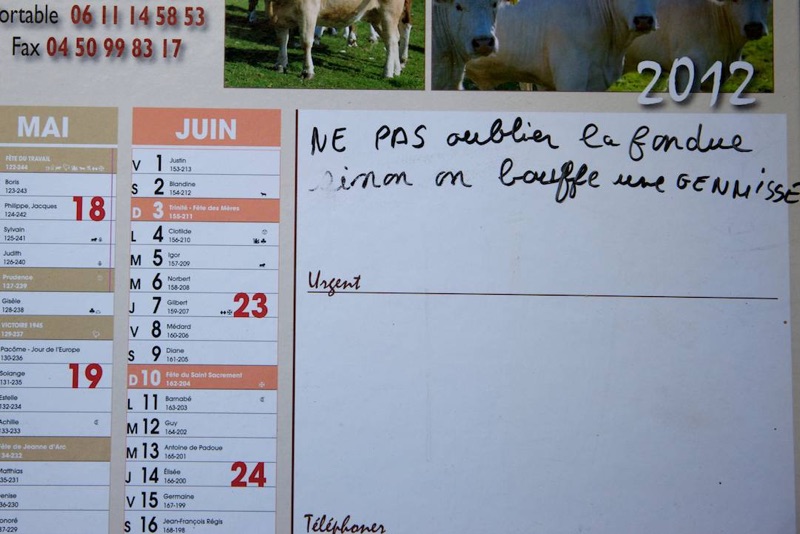 ortable 06 11 14 58 53
Fax 04 50 99 83 17
2012
NE PAS oublier la fondue
sinon on bouffe une GENMISSE
Urgent
Téléphoner
MAI
FÊTE DU TRAVAIL
122-244
Boris
123-243
Philippe, Jacques
124-242
18
Sylvain
125-241
Judith
126-240
Prudence
127-239
Gisèle
128-238
VICTOIRE 1945
129-237
Pacôme - Jour de l'Europe
130-236
Solange
131-235
19
Estelle
132-234
Achille
133-233
Fête de Jeanne d'Arc
134-232
Matthias
35-231
Denise
36-230
Honoré
37-229
JUIN
V 1 Justin
153-213
S 2 Blandine
154-212
D 3 Trinité - Fête des Mères
155-211
L 4 Clotilde
156-210
M 5 Igor
157-209
M 6 Norbert
158-208
J 7 Gilbert
159-207
23
V 8 Médard
160-206
S 9 Diane
161-205
D 10 Fête du Saint Sacrement
162-204
L 11 Barnabé
163-203
M 12 Guy
164-202
M 13 Antoine de Padoue
165-201
J 14 Élisée
166-200
24
V 15 Germaine
167-199
S 16 Jean-François Régis
168-198